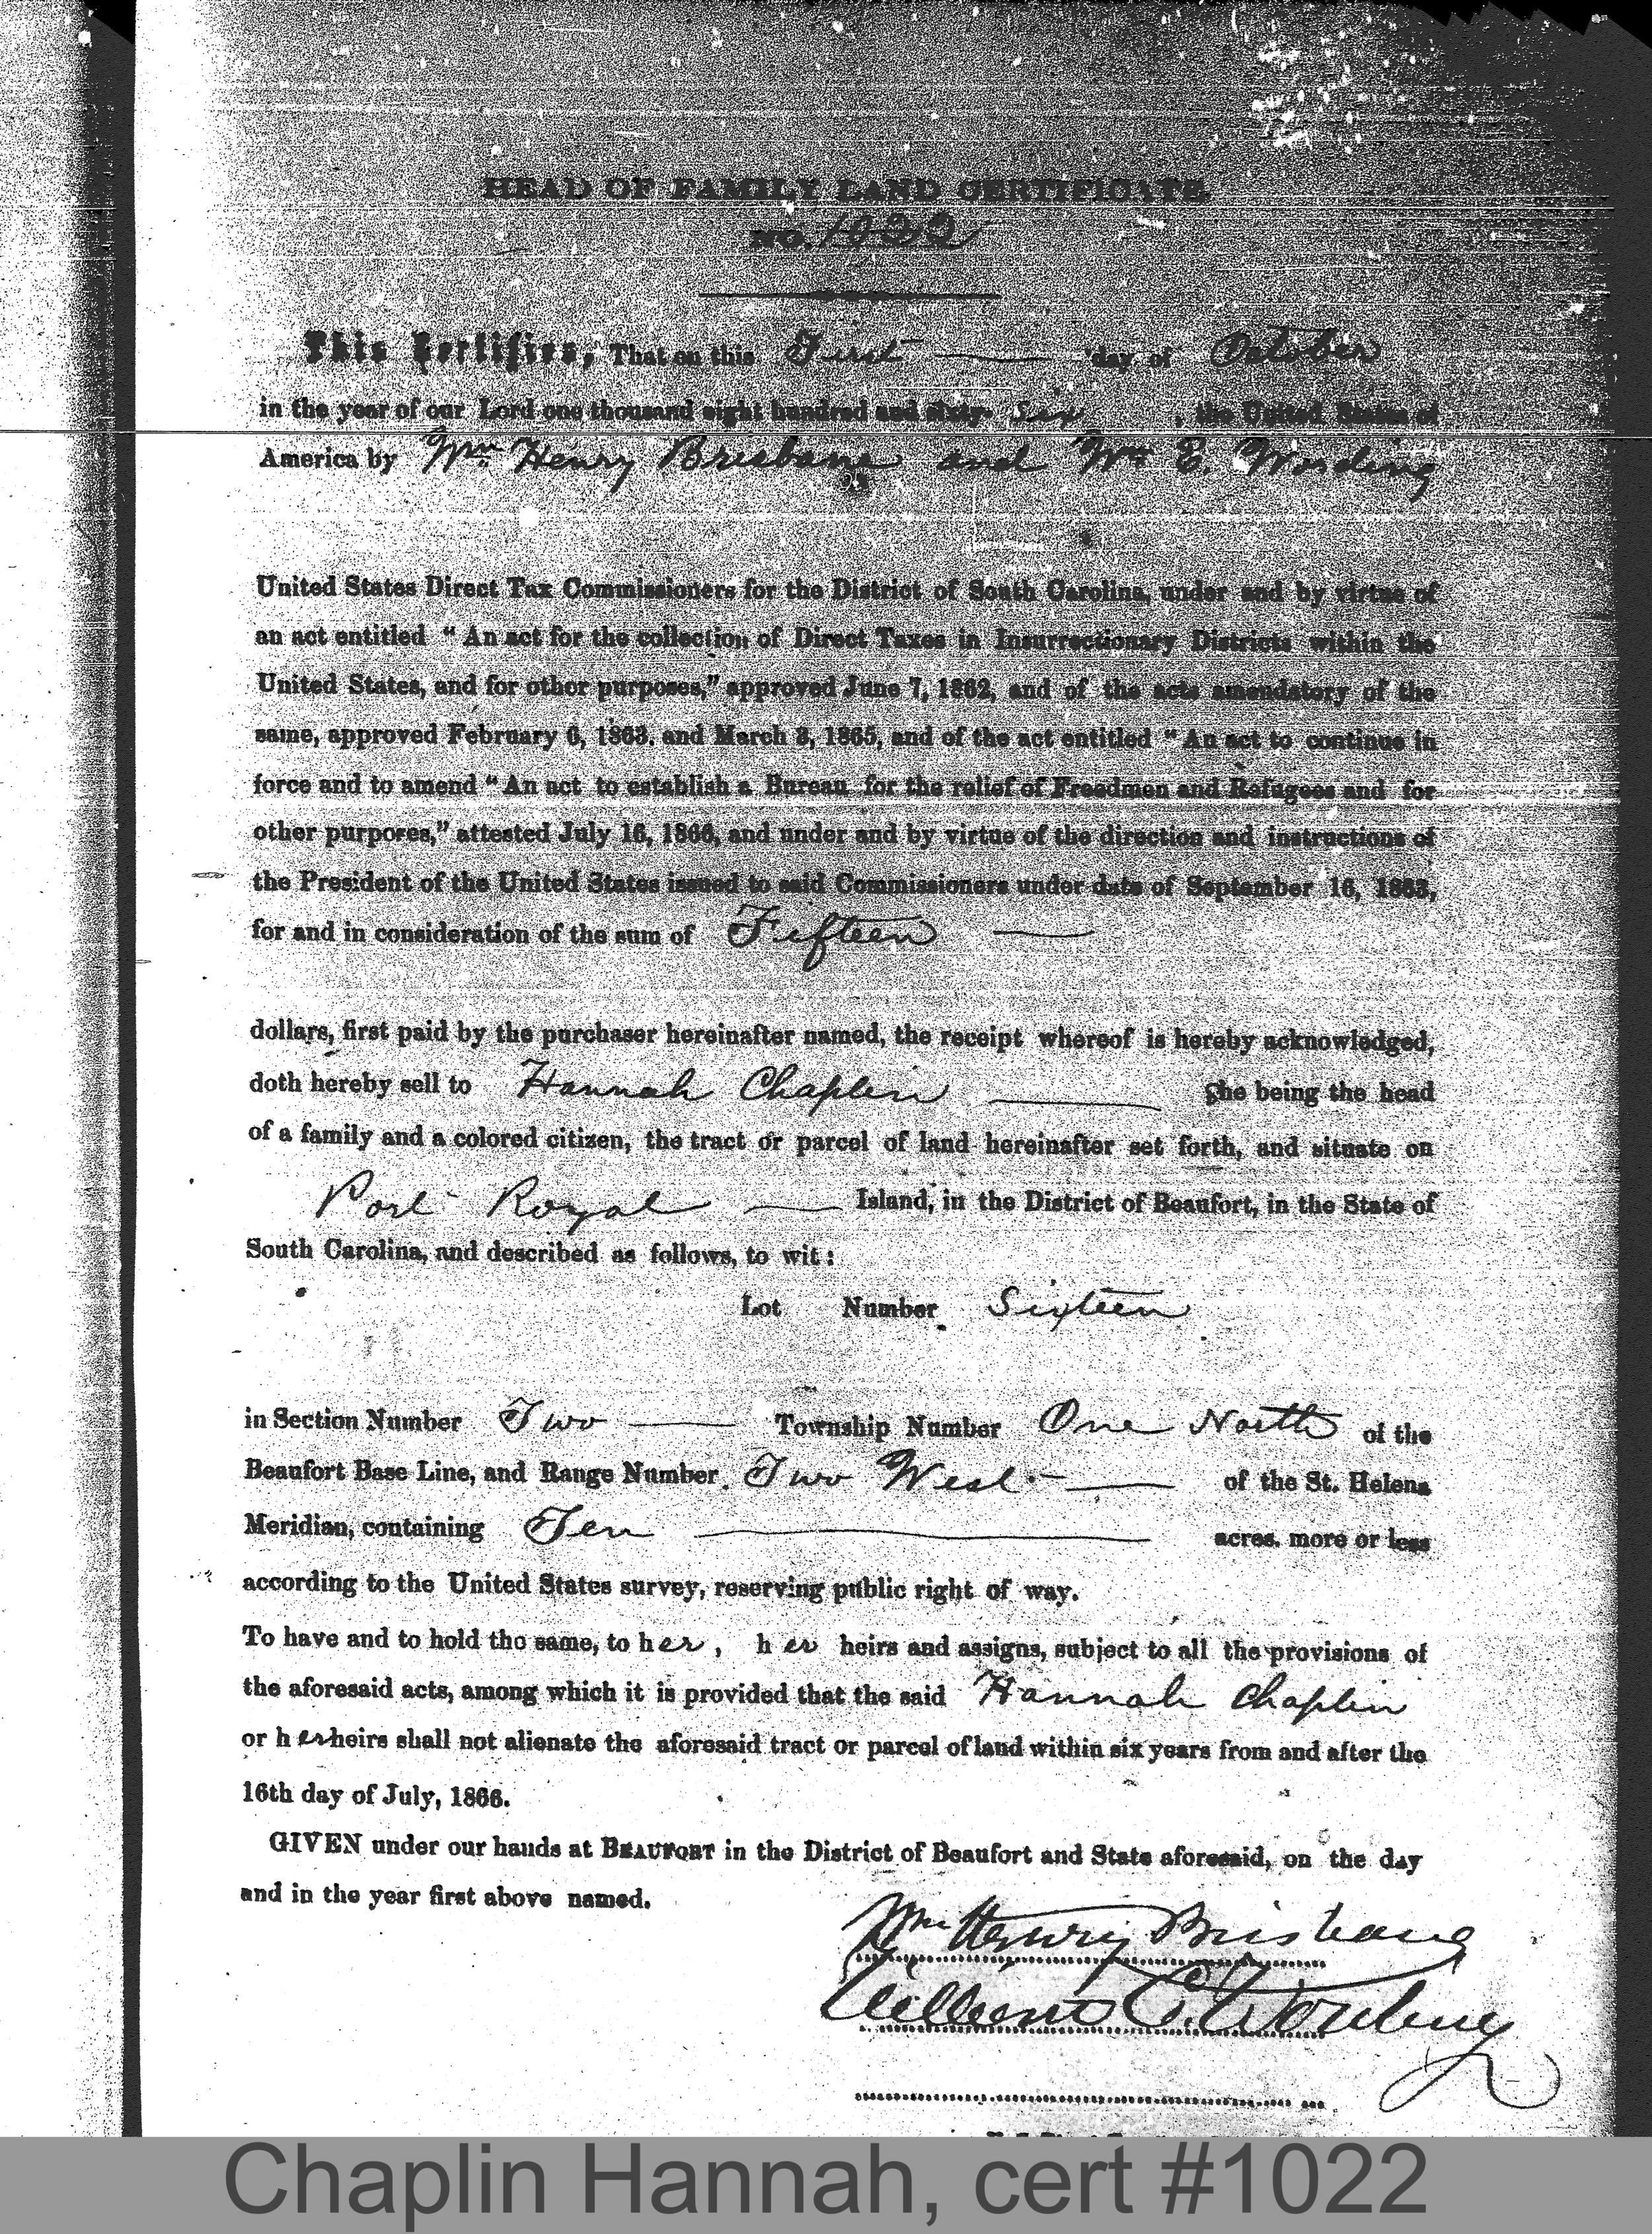 HEAD OF FAMILY LAND CERTIFICATE.
NO. 1022
This Certifies, That on this First day of October
in the year of our Lord one thousand eight hundred and sixty-Six, the United States of
America by Wm. Henry Brisbane and Wm E. Wording
United States Direct Tax Commissioners for the District of South Carolina, under and by virtue of
an act entitled “An act for the collection of Direct Taxes in Insurrectionary Districts within the
United States, and for other purposes,” approved June 7, 1862, and of the acts amendatory of the
same, approved February 6, 1863, and March 3, 1865, and of the act entitled “An act to continue in
force and to amend “An act to establish a Bureau for the relief of Freedmen and Refugees and for
other purposes,” attested July 16, 1866, and under and by virtue of the direction and instructions of
the President of the United States issued to said Commissioners under date of September 16, 1863,
for and in consideration of the sum of Fifteen
dollars, first paid by the purchaser hereinafter named, the receipt whereof is hereby acknowledged,
doth hereby sell to Hannah Chaplin She being the head
of a family and a colored citizen, the tract or parcel of land hereinafter set forth, and situate on
Port Royal Island, in the District of Beaufort, in the State of
South Carolina, and described as follows, to wit:
Lot Number Sixteen
in Section Number Two Township Number One North of the
Beaufort Base Line, and Range Number Two West of the St. Helena
Meridian, containing Ten acres, more or less
according to the United States survey, reserving public right of way.
To have and to hold the same, to her, her heirs and assigns, subject to all the provisions of
the aforesaid acts, among which it is provided that the said Hannah Chaplin
or her heirs shall not alienate the aforesaid tract or parcel of land within six years from and after the
16th day of July, 1866.
GIVEN under our hands at BEAUFORT in the District of Beaufort and State aforesaid, on the day
and in the year first above named.
Wm Henry Brisbane
William E. Wording
Chaplin Hannah, cert #1022